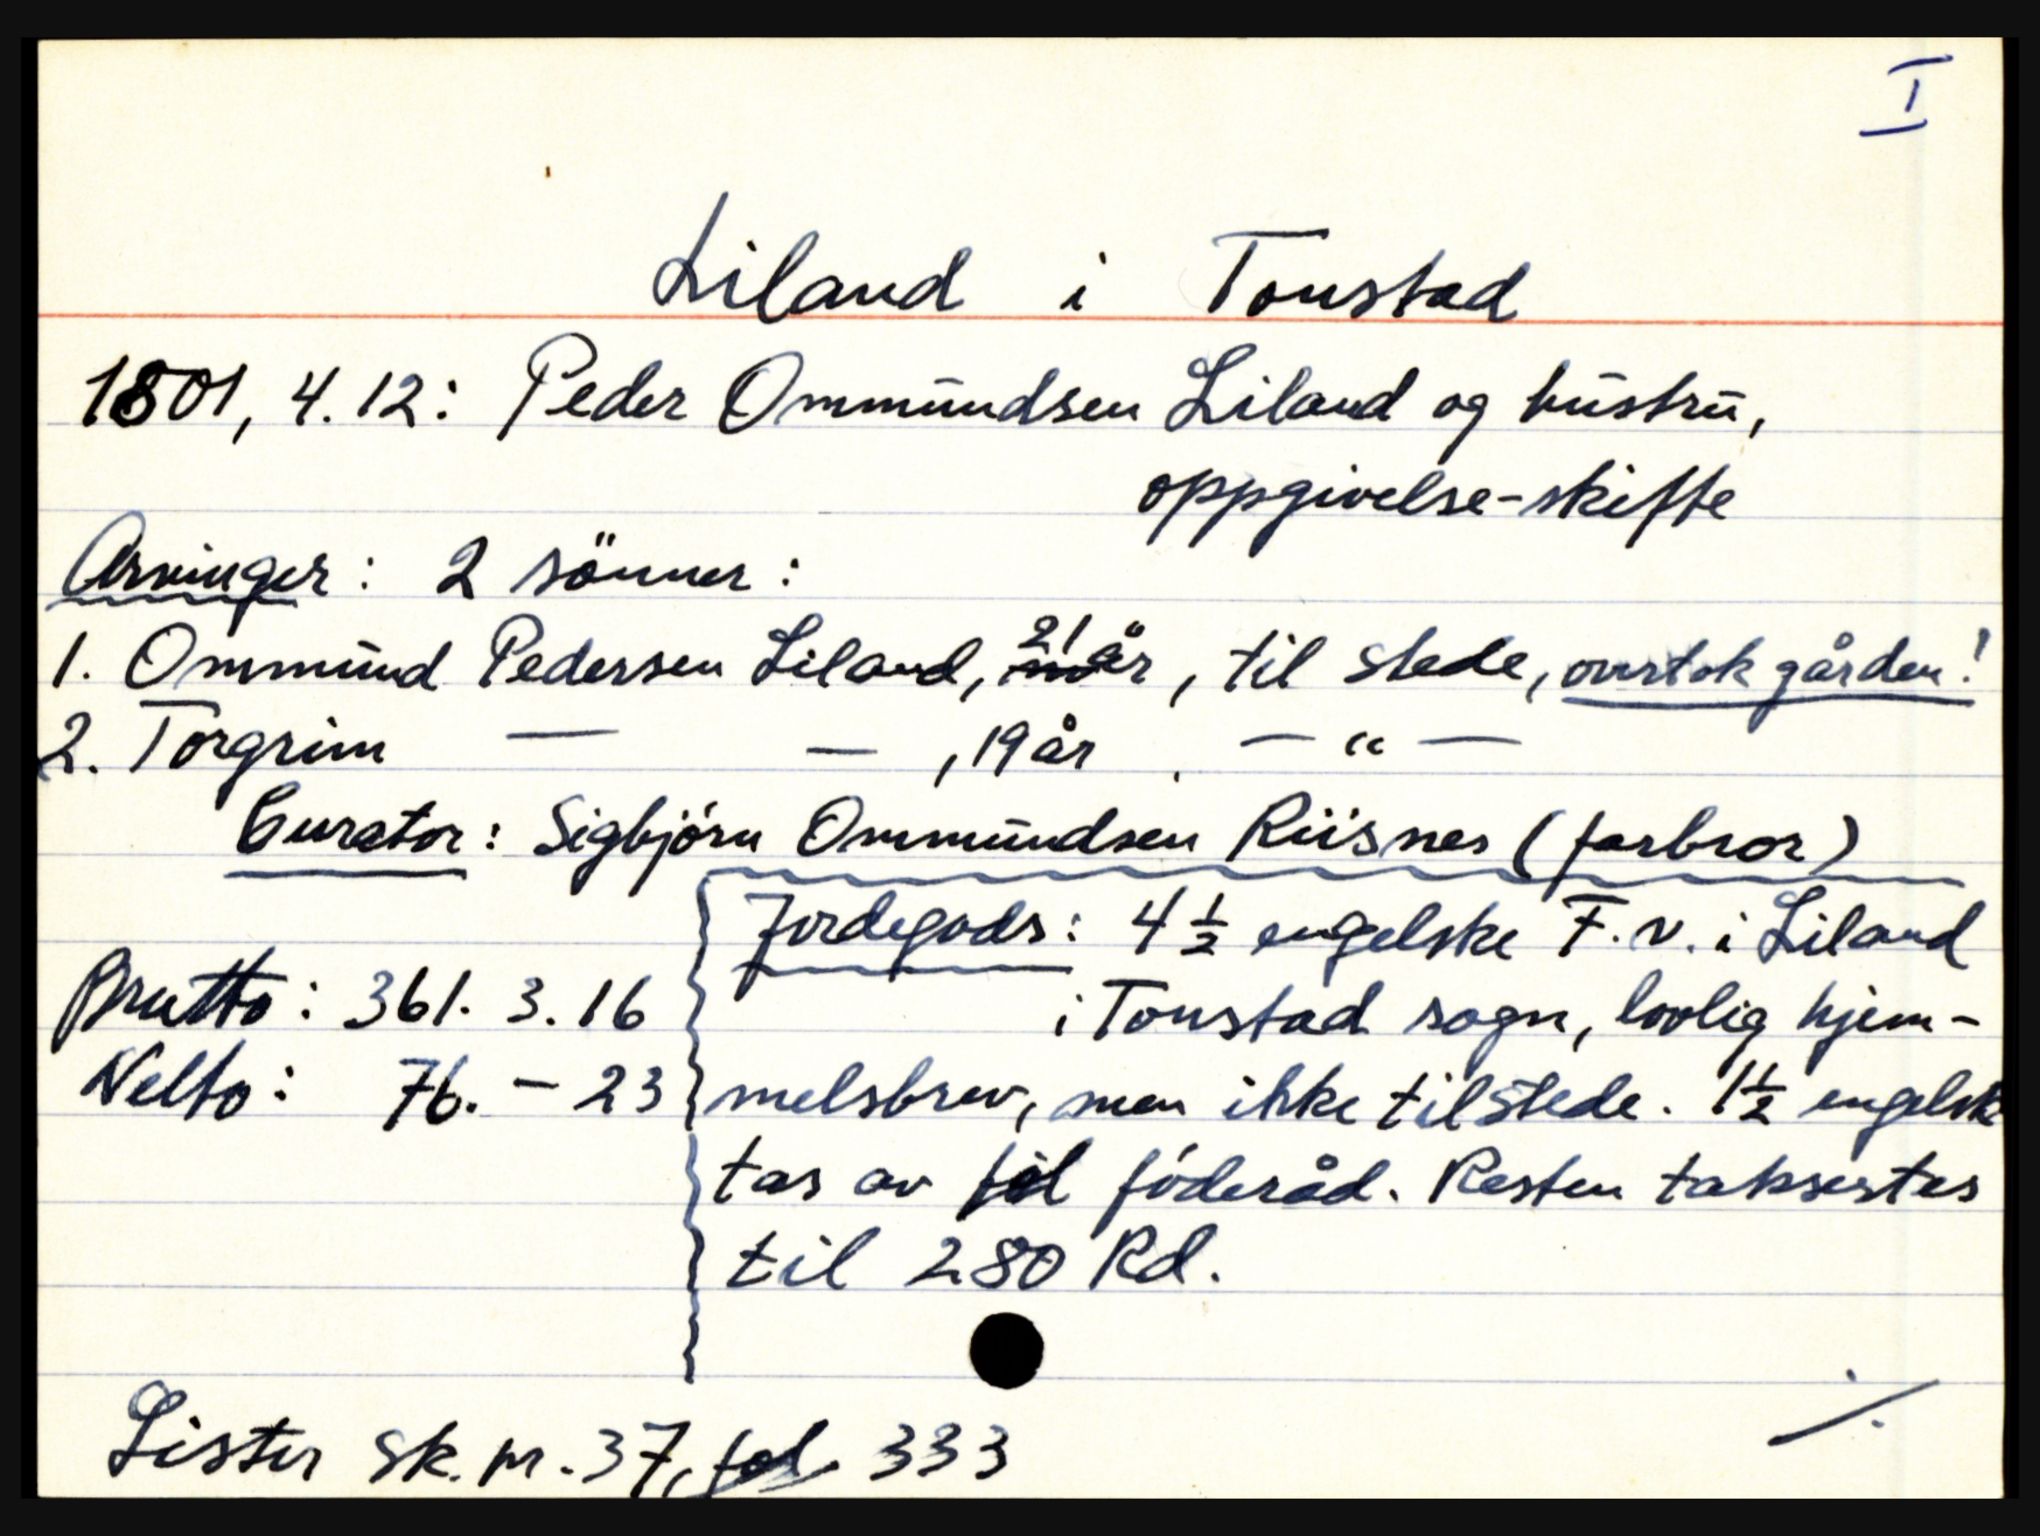 I
Liland i Tonstad
1801, 4.12: Peder Ommundsen Liland og hustru,
oppgivelse-skifte
Arvinger: 2 sönner:
1. Ommund Pedersen Liland, 21 år, til stede, overtok gården!
2. Torgrim — — , 19 år . — " —
Curator: Sigbjörn Ommundsen Riisnes (farbror)
Jordegods: 4 ½ engelske F.v. i Liland
i Tonstad sogn, lovlig hjem-
melsbrev, men ikke tilstede. 1½ engelske
tas av til föderåd. Resten taksertes
til 280 Rd.
Brutto: 361. 3. 16
Netto: 76. – 23
Lister sk. pr. 37, fol. 333
./.